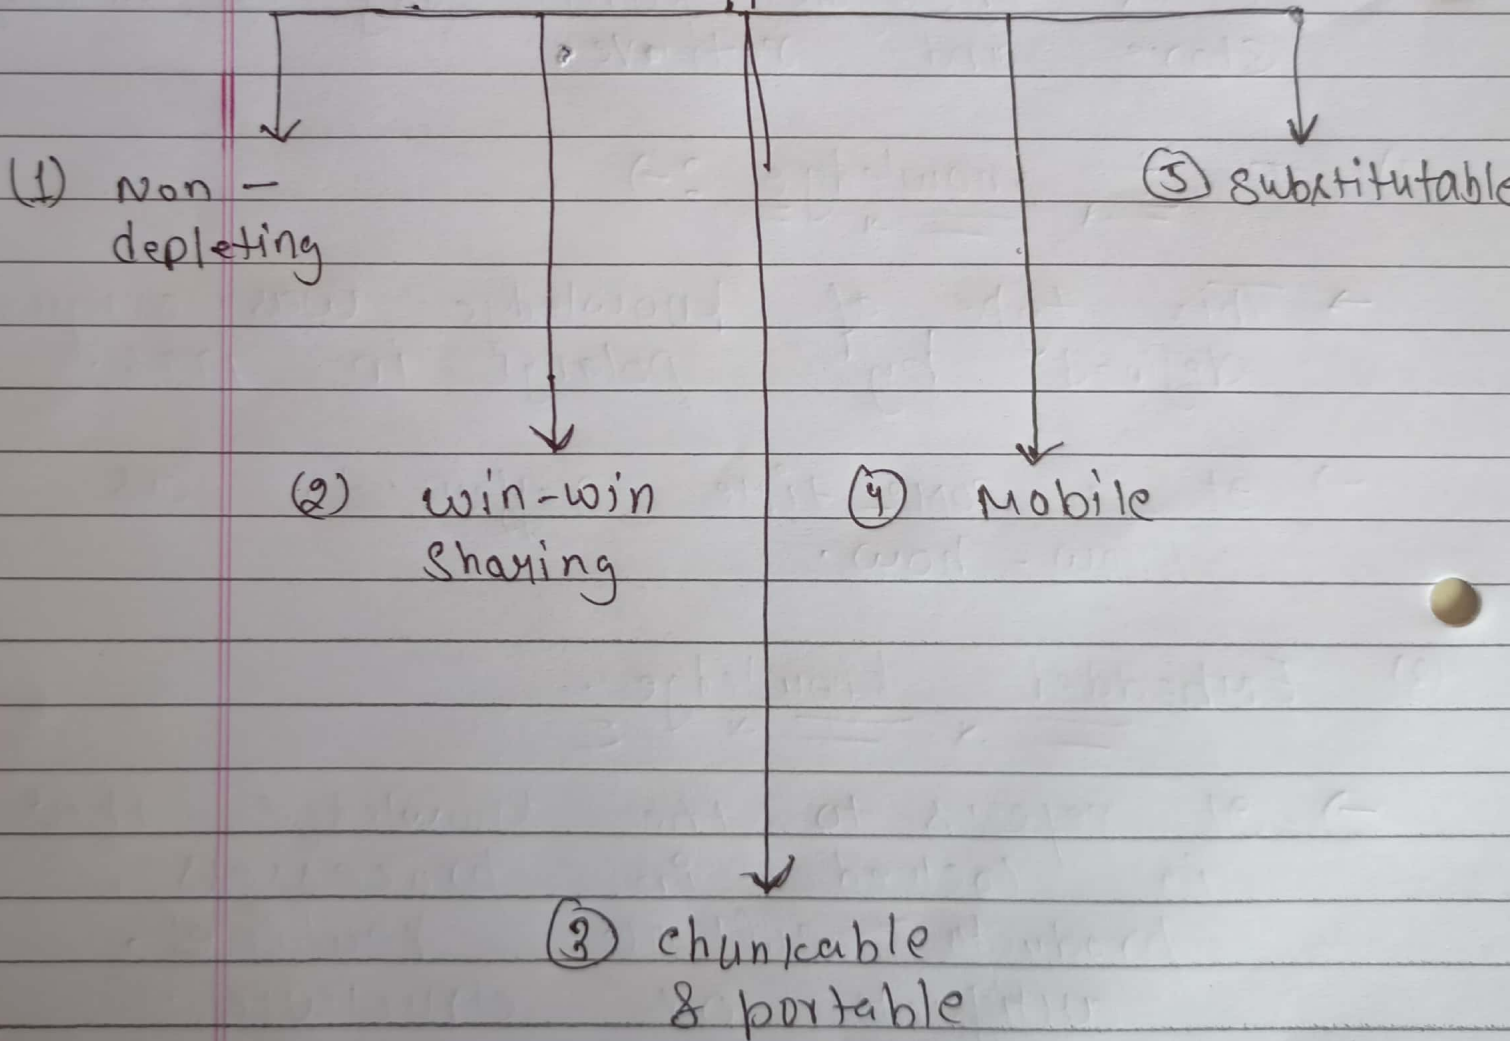 (1) Non-
depleting
(2) win-win
sharing
(3) chunkable
& portable
(4) Mobile
(5) substitutable